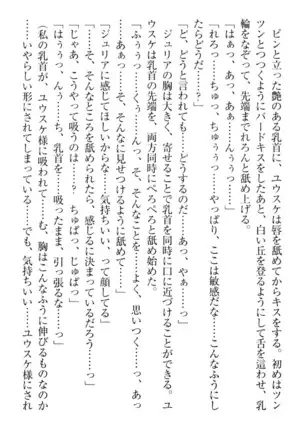 ピンと立った艶のある乳首に、ユウスケは唇を舐めてからキスをする。初めはツン
ツンとつつくようにバードキスをしたあと、白い丘を登るようにして舌を這わせ、乳
輪をなぞって、先端までれろんと舐め上げる。
「はぁっ、あっ、あぁ……んっ」
「れろっ……ちゅっ、ちゅぅぅっ……やっぱり、ここは敏感だな……こんなふうにし
たらどうだ……？」
「ど、どうと言われても……どうするのだ……あ……ふぁっ……」
ジュリアの胸は大きく、寄せることで乳首を同時に口に近づけることができる。ユ
ウスケは乳首の先端を、両方同時にべろべろと舐め始めた。
「うぅっ……くぅぅっ……んっ、そ、そんなことを……よく、思いつく……っ、あっ
……あぁっ……そ、そんなに見せつけるように舐めて……」
「ジュリアに感じてほしいからな……気持ちいい、って顔してる」
「そ、そんなところを舐められたら、感じるに決まっているだろう……っ」
「じゃあ、こうやって吸うのは……？　ちゅぱっ、じゅぱっ」
「はぅぅっ、んっ……ち、乳首を、吸ったまま、引っ張るな……っ」
（私の乳首が、ユウスケ様に吸われて……む、胸はこんなふうに伸びるものなのか
……いやらしい形にされてしまっている……でも、気持ちいい……ユウスケ様にされ